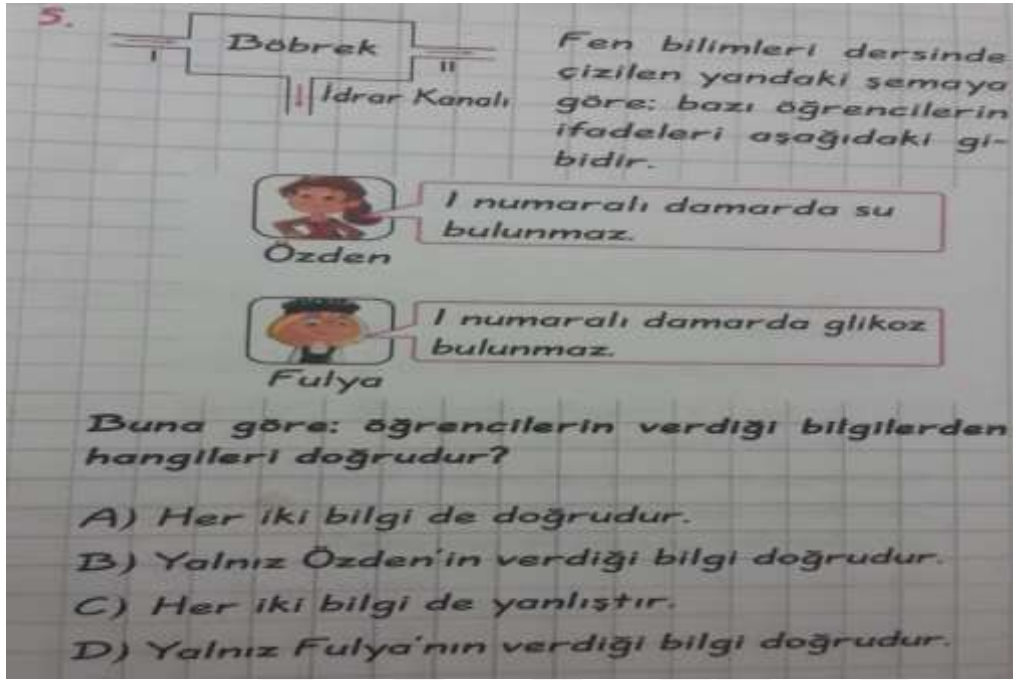 5.
Böbrek
I
II
İdrar Kanalı
Fen bilimleri dersinde
çizilen yandaki şemaya
göre; bazı öğrencilerin
ifadeleri aşağıdaki gi-
bidir.
I numaralı damarda su
bulunmaz.
Özden
I numaralı damarda glikoz
bulunmaz.
Fulya
Buna göre; öğrencilerin verdiği bilgilerden
hangileri doğrudur?
A) Her iki bilgi de doğrudur.
B) Yalnız Özden'in verdiği bilgi doğrudur.
C) Her iki bilgi de yanlıştır.
D) Yalnız Fulya'nın verdiği bilgi doğrudur.